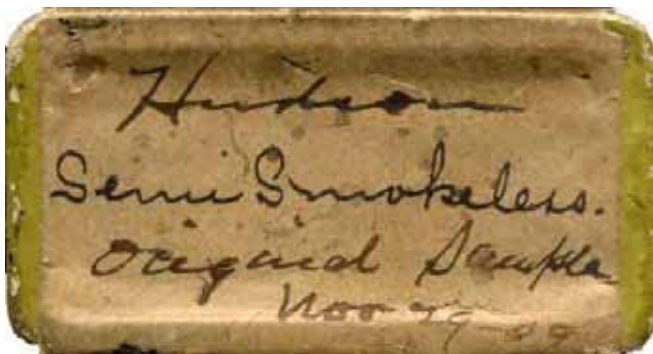 Hudson
Semi Smokeless.
Original Sample
Nov